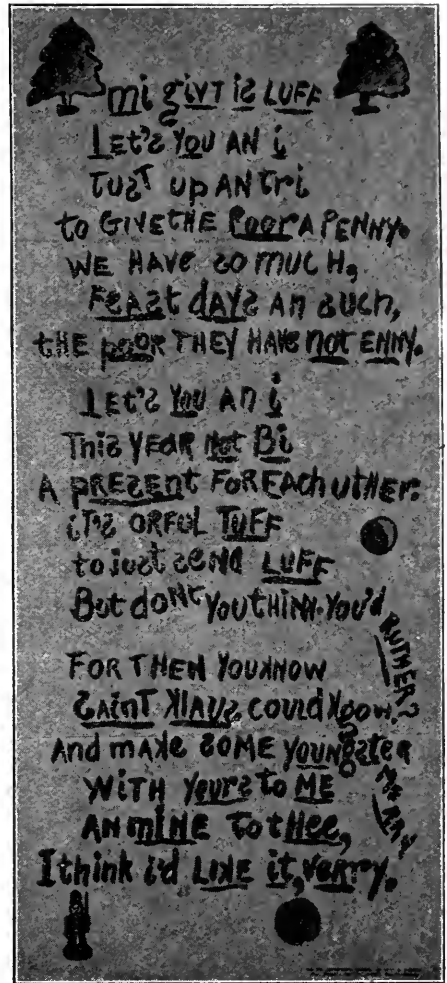 mi giVT is LUFF
LEt's YoU AN i
JusT up AN tri
to GIVE tHE PooR A PENNY.
WE HAVe so mUC H,
FEAst dAYs AN sUCH,
tHE pooR THEY HAVE not ENNY.
LEt's YoU AN i
This YEAR Not Bi
A pREsENt FoR EAch utHER.
iT's ORFUL TUFF
to just send LUFF
But doNt You tHiNK You'd
RUTHER?
FoR THEN YoU KNOW
SAiNT KlAUs coUld Know
And mAKe soME yoUNgsteR
so
MERRY
WiTH YoURs to ME
AN miNE To tHee,
I think i'd LIKE it, VeRRy.